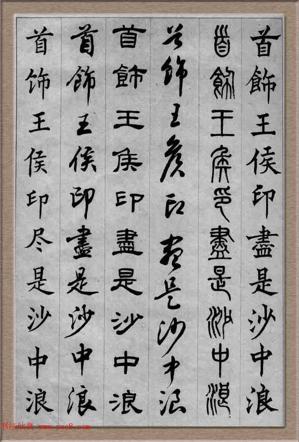 首飾王侯印盡是沙中浪
首飾王侯印盡是沙中浪
首飾王侯印盡是沙中浪
首飾王侯印盡是沙中浪
首飾王侯印盡是沙中浪
首饰王侯印尽是沙中浪